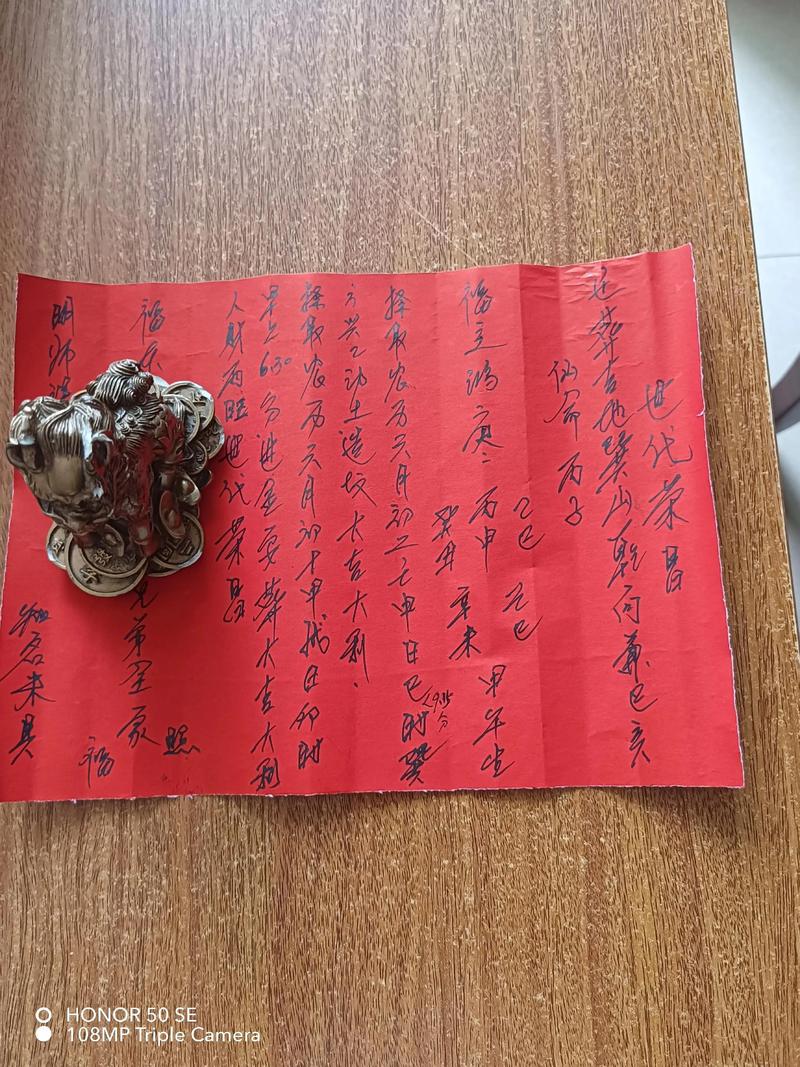 世代荣昌
迁葬吉地巽山乾向兼巳亥
仙命丙子
乙巳 乙巳
福主鸿 丙申 辛未 甲午生
癸丑
择取农历六月初二壬申日巳时 9.15分 巽
方兴工动土造坟大吉大利、
择取农历六月初十甲戌日卯时
早上630分进金安葬大吉大利
人财两旺世代荣昌
福
兄弟全家 照
福
明师
知名未具
HONOR 50 SE
108MP Triple Camera